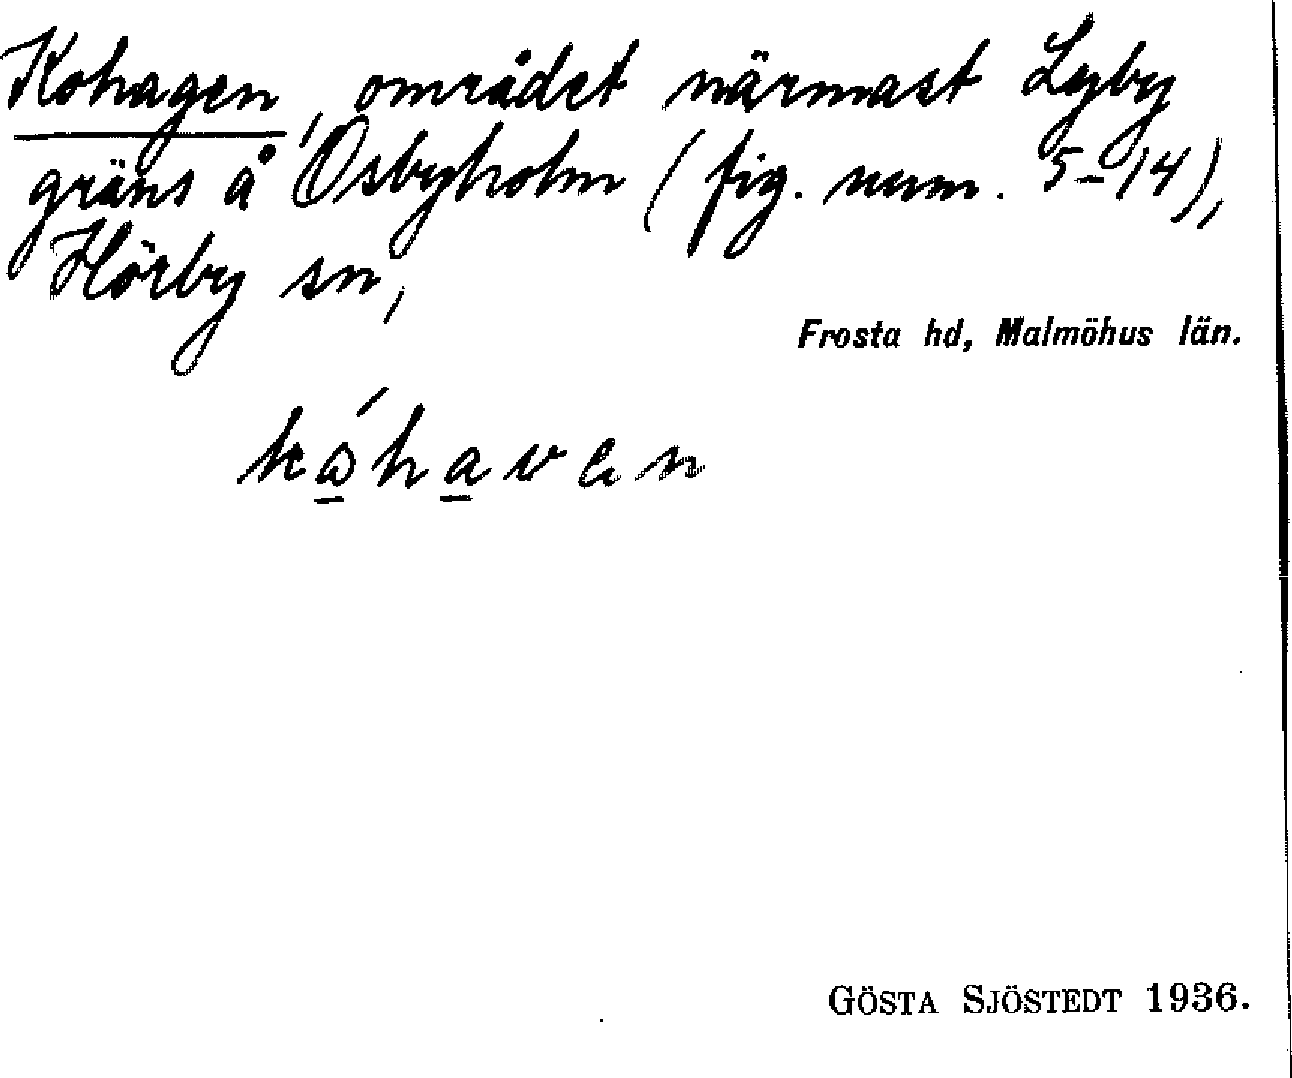 Kohagen, området närmast Lyby
gräns å Osbyholm (fig. num. 5-14),
Hörby sn,
Frosta hd, Malmöhus län.
GÖSTA SJÖSTEDT 1936.